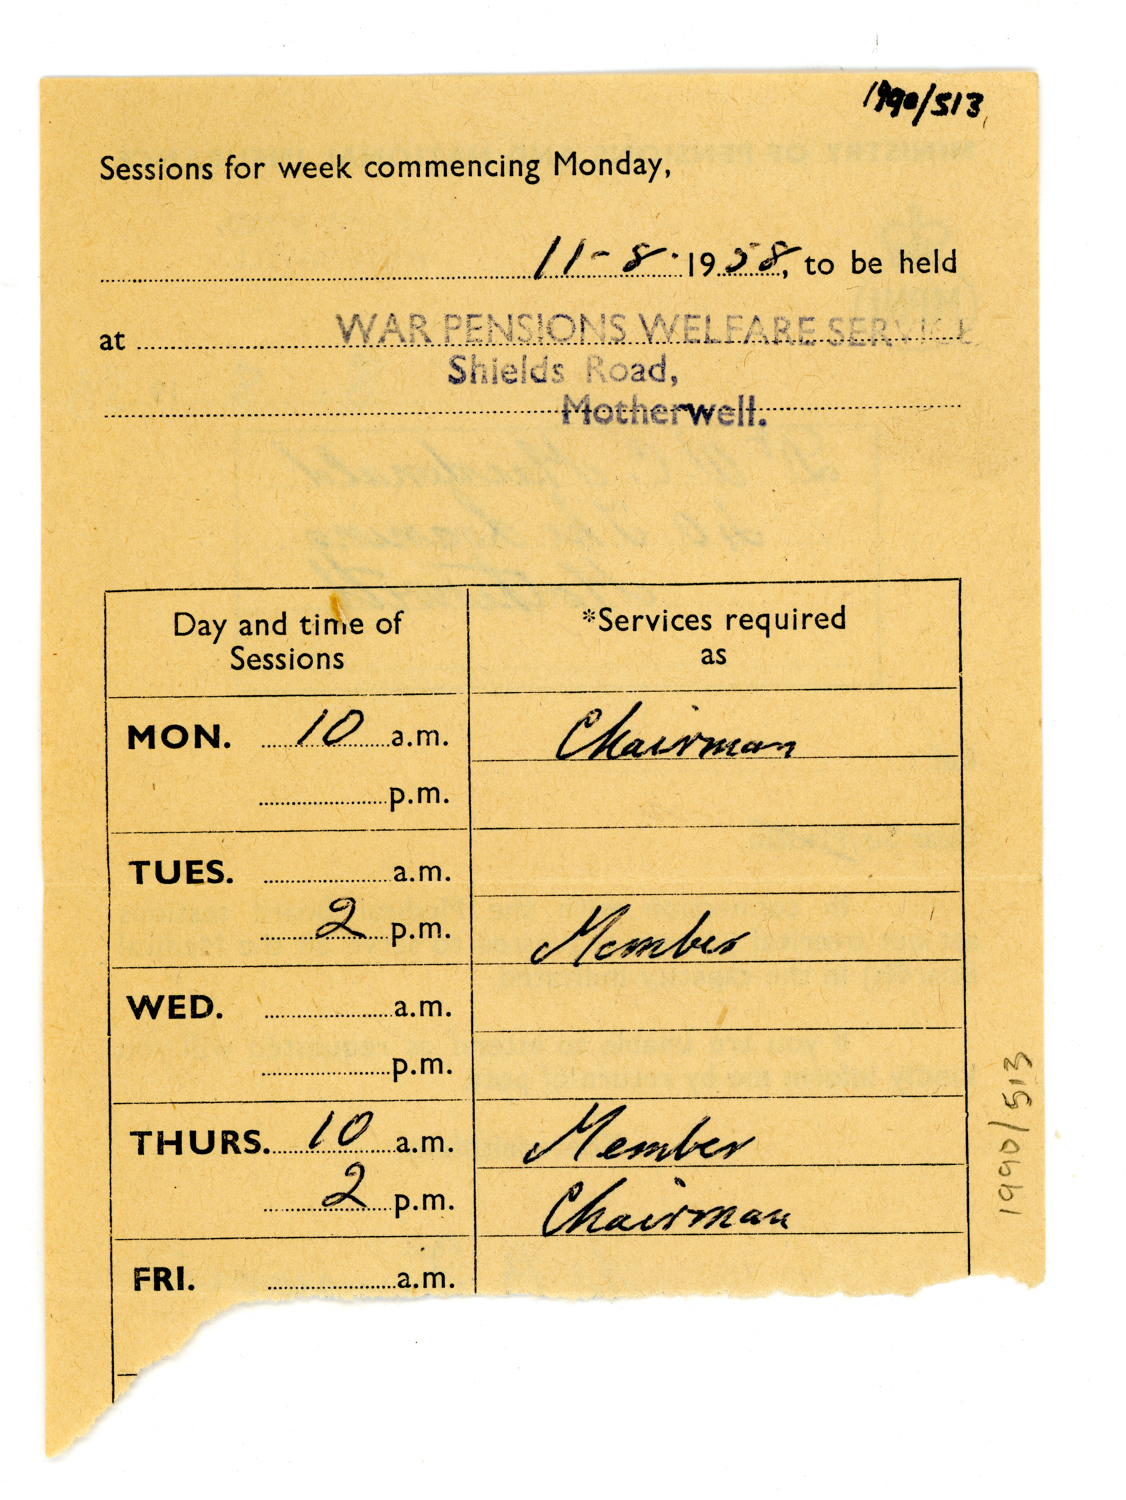 1990/513
Sessions for week commencing Monday,
11-8-1958, to be held
at WAR PENSIONS WELFARE SERVICE
Shields Road,
Motherwell.
Day and time of Sessions
*Services required as
MON. 10 a.m. Chairman
p.m.
TUES. a.m.
2 p.m. Member
WED. a.m.
p.m.
THURS. 10 a.m. Member
2 p.m. Chairman
FRI. a.m.
1990/513